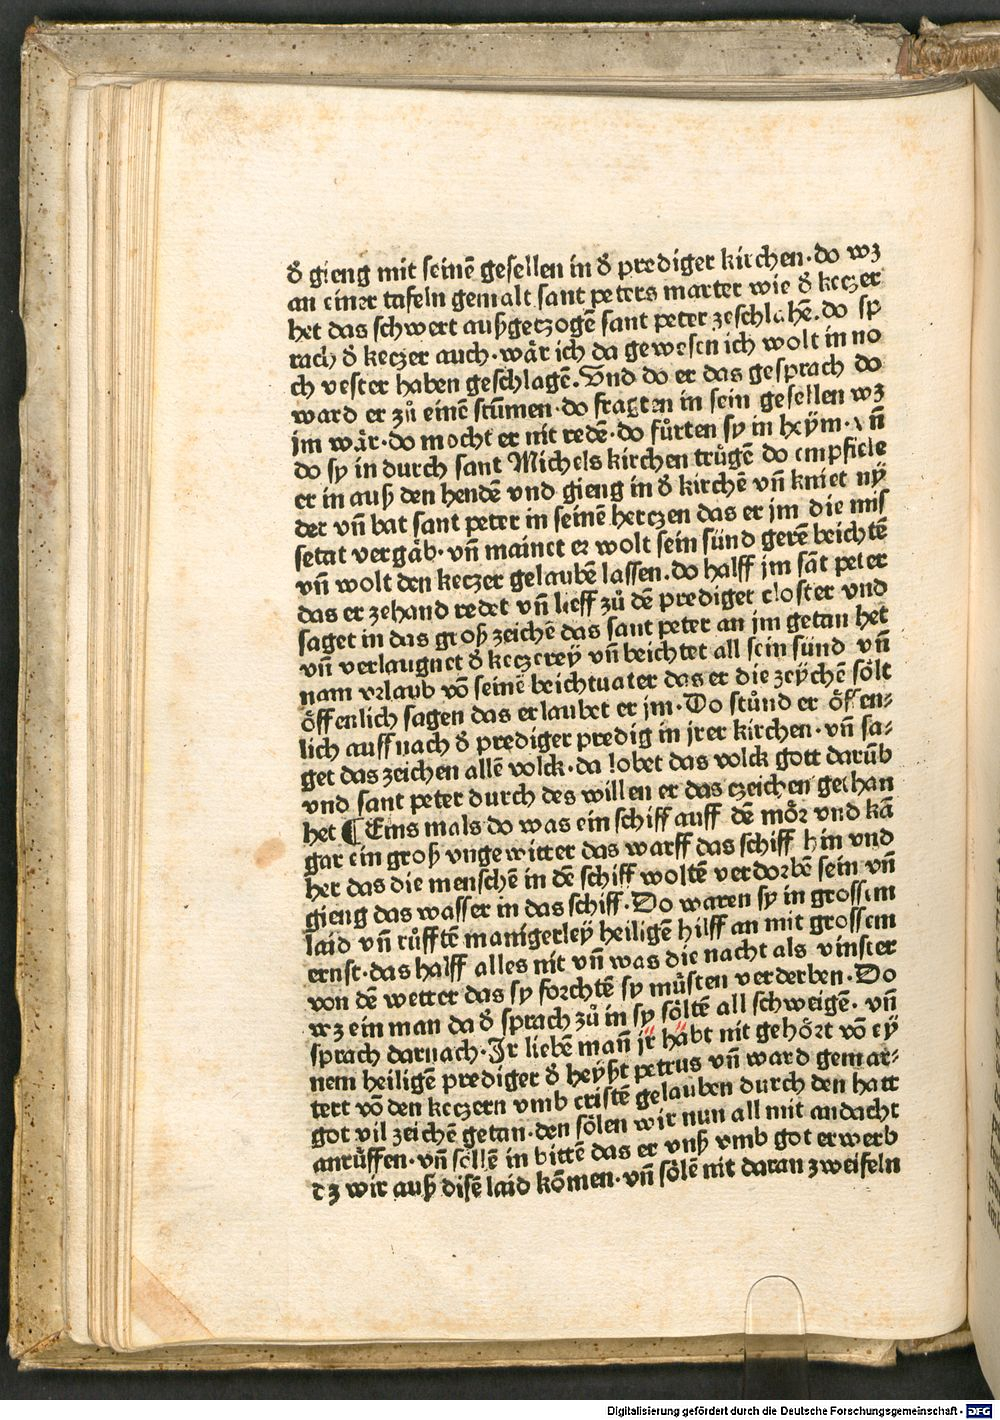 d̕ gieng mit seinē gesellen in d̕ prediger kirchen·do wꝫ
an einer tafeln gemalt sant peters marter wie d̕ keczer
het das schwert außgetzogē sant peter zeschlahē·do sp
rach d̕ keczer auch·wår ich da gewesen ich wolt in no
ch vester haben geschlagē·Vnd do er das gesprach do
ward er zů einē stūmen·do fragten in sein gesellen wꝫ
jm wår·do mocht er nit redē·do fůrten sy in heÿm·vñ
do sy in durch sant Michels kirchen trůgē do empfiele
er in auß den hendē vnd gieng in d̕ kirchē vñ kniet nÿ
der vñ bat sant peter in seinē herczen das er jm die mis
setat vergåb·vñ mainet er wolt sein sünd gerē beichtē
vñ wolt den keczer gelaubē lassen·do halff jm sāt peter
das er zehand redet vñ lieff zů dē prediget closter vnd
saget in das groß zeichē das sant peter an jm getan het
vñ verlaugnet d̕ keczereÿ vñ beichtet all sein sünd vñ
nam vrlaub vō seinē beichtuater das er die zeÿchē sölt
öffenlich sagen das erlaubet er jm·Do stůnd er öffen⸗
lich auff nach d̕ prediger predig in jrer kirchen·vñ sa⸗
get das zeichen allē volck·da lobet das volck gott darūb
vnd sant peter durch des willen er das czeichen gethan
het ¶ Eins mals do was ein schiff auff dē mör vnd kā
gar ein groß vngewitter das warff das schiff hin vnd
her das die menschē in dē schiff woltē verdorbē sein vñ
gieng das wasser in das schiff·Do waren sy in grossem
laid vñ růfftē manigerleÿ heiligē hilff an mit grossem
ernst·das halff alles nit vñ was die nacht als vinster
von dē wetter das sy forchtē sy můsten verderben·Do
wꝫ ein man da d̕ sprach zů in sy söltē all schweigē·vñ
sprach darnach·Ir liebē mañ jr habt nit gehört vō eÿ
nem heiligē prediger d̕ heÿßt petrus vñ ward gemar⸗
tert vō den keczern vmb cristē gelauben durch den hatt
got vil zeichē getan·den sölen wir nun all mit andacht
anrůffen·vñ söllē in bittē das er vnß vmb got erwerb
dꝫ wir auß disē laid kōmen·vñ sölē nit daran zweifeln
Digitalisierung gefördert durch die Deutsche Forschungsgemeinschaft - DFG